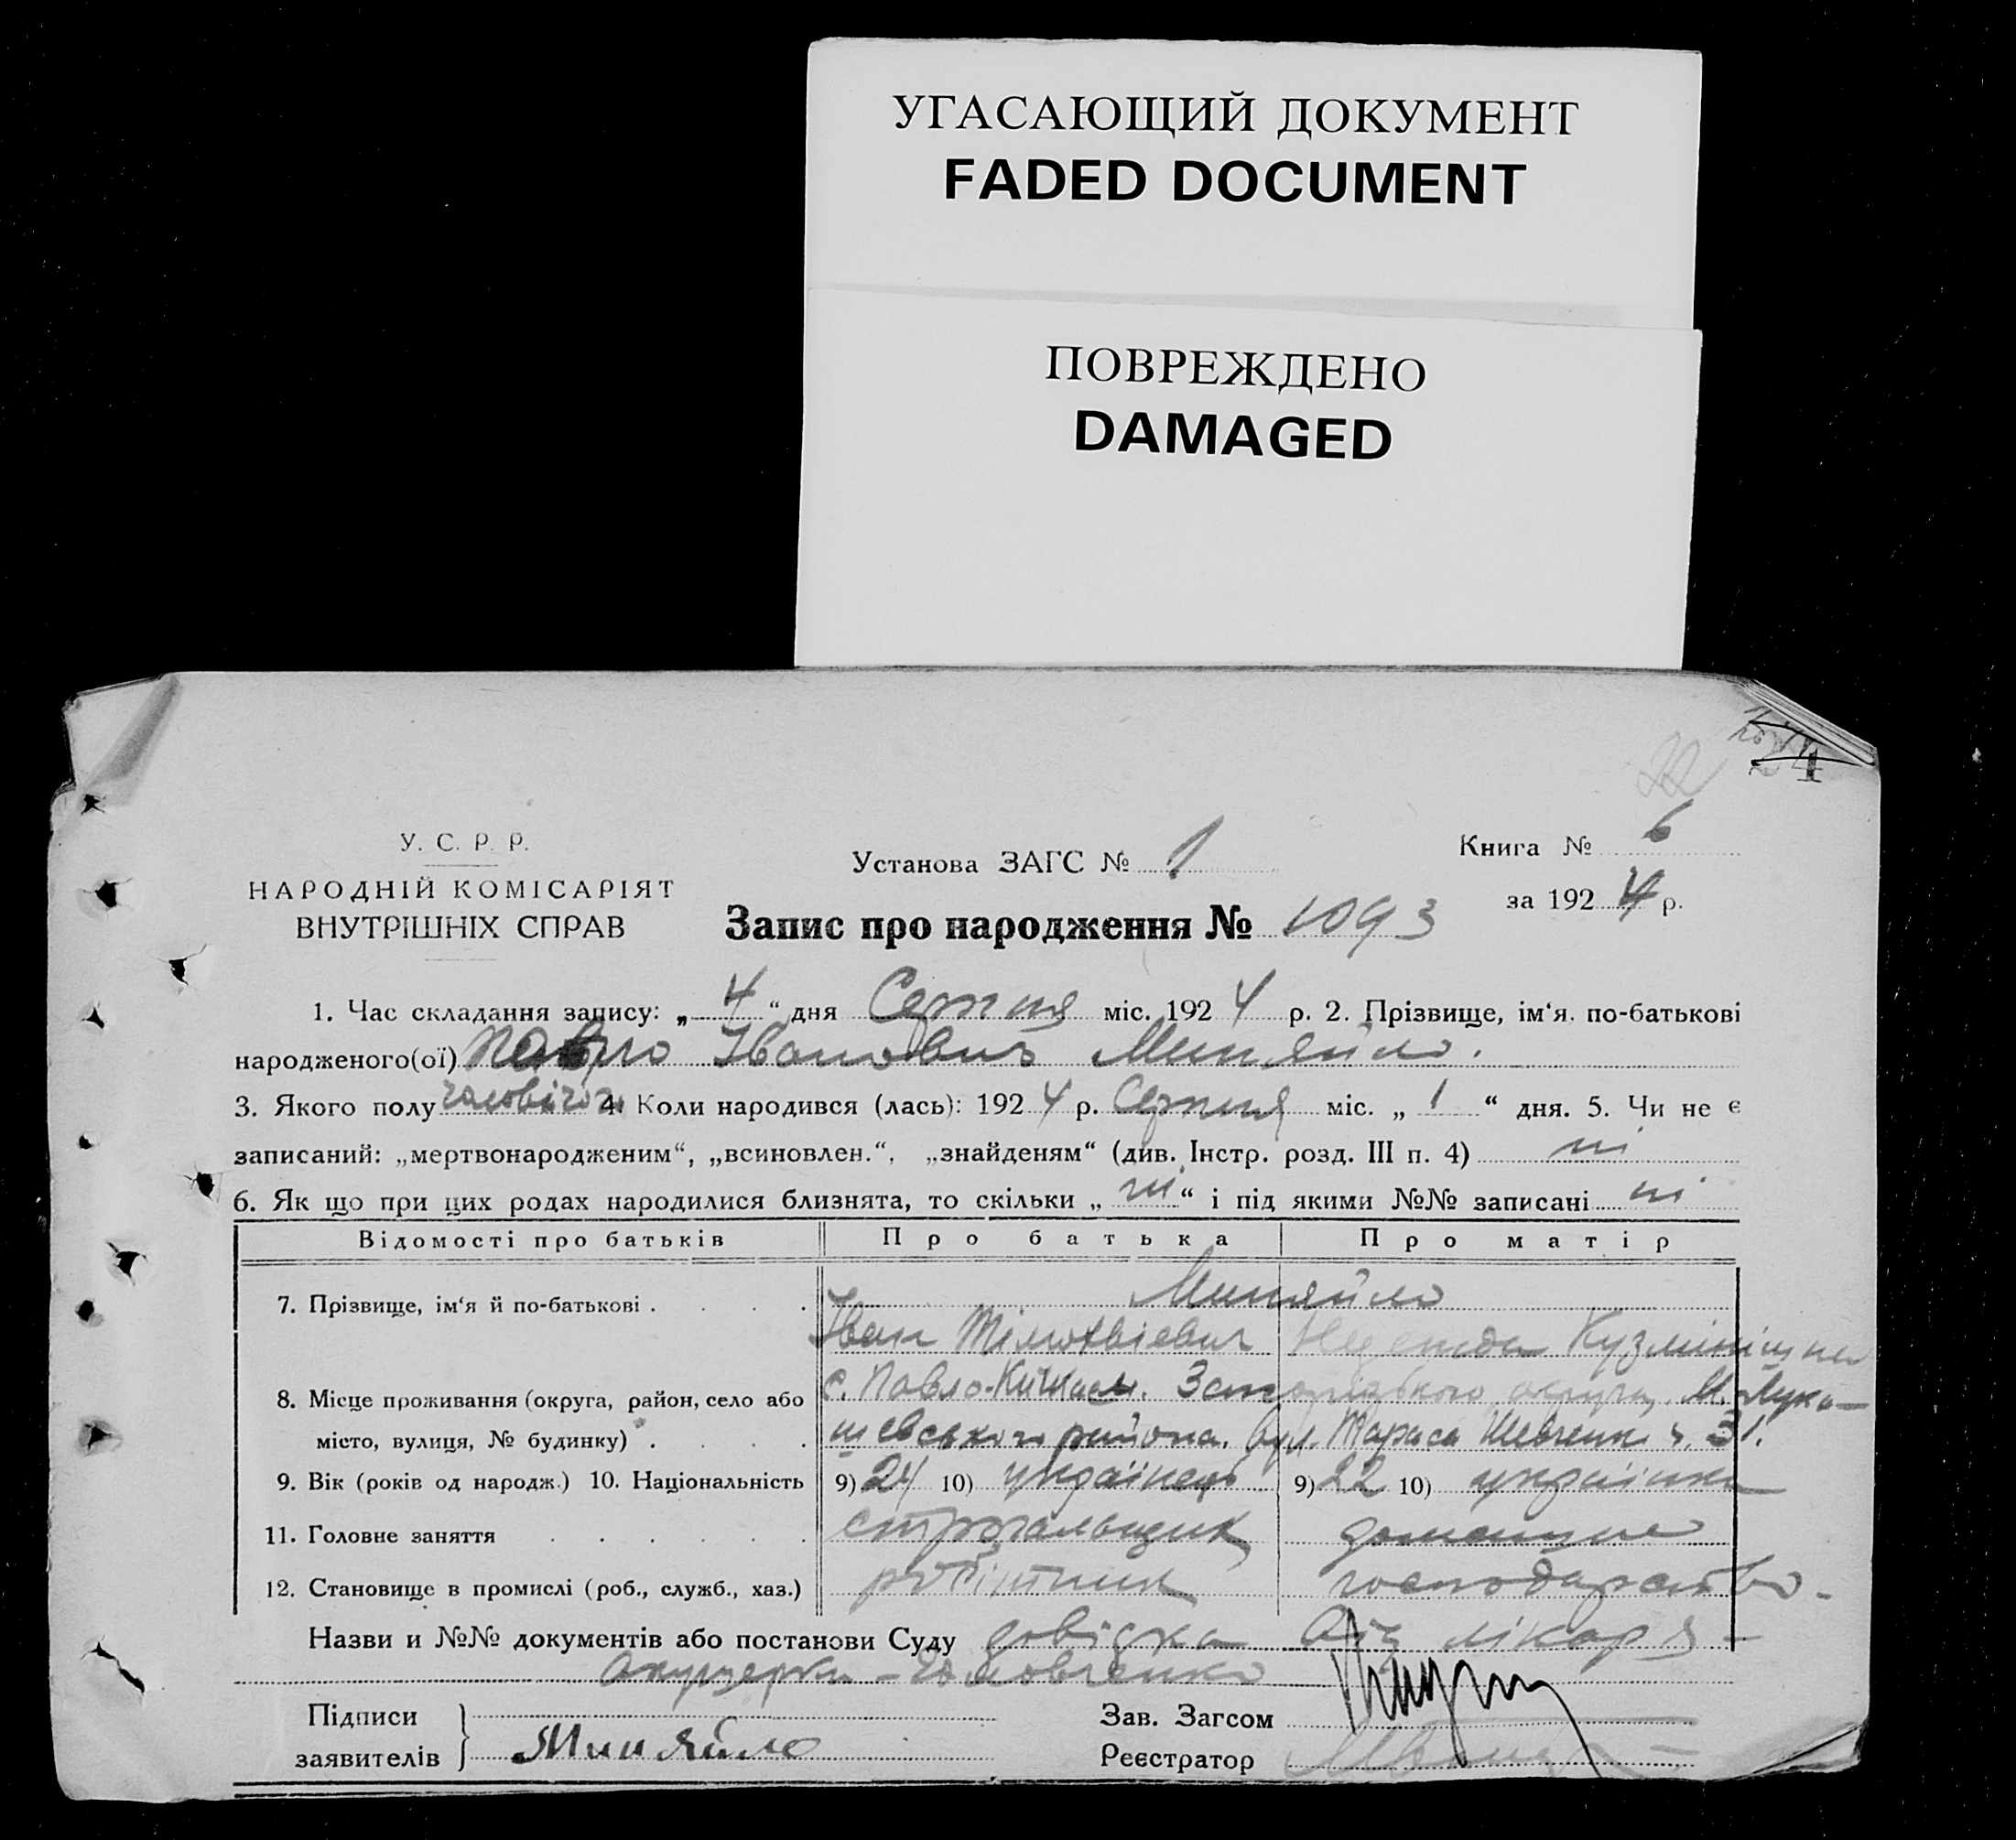 УГАСАЮЩИЙ ДОКУМЕНТ
FADED DOCUMENT
ПОВРЕЖДЕНО
DAMAGED
22
4
У. С. Р. Р.
НАРОДНІЙ КОМІСАРІЯТ
ВНУТРІШНІХ СПРАВ
Установа ЗАГС № 1
Книга № 6
за 1924 р.
Запис про народження № 1093
1. Час складання запису: „4“ дня Серпня міс. 1924 р. 2. Прізвище, ім‘я. по-батькові
народженого(ої) Павло Іванович Миняйло.
3. Якого полу чоловічого 4. Коли народився (лась): 1924 р. Серпня міс. „1“ дня. 5. Чи не є
записаний: „мертвонародженим“, „всиновлен.“, „знайденям“ (див. Інстр. розд. III п. 4) ні
6. Як що при цих родах народилися близнята, то скільки „ні“ і під якими №№ записані ні
Відомості про батьків Про батька Про матір
7. Прізвище, ім‘я й по-батькові . . . . Миняйло
Іван Тімофвієвич Кузмінішна
8. Місце проживання (округа, район, село або с. Павло-Кичкас. Запорізького округи, М. Лука-
місто, вулиця, № будинку) . . . . шевського района. вул. Тараса Шевченк ч. 31.
9. Вік (років од народж.) 10. Національність 9) 24 10) українець 9) 22 10) українка
11. Головне заняття . . . . . . строгальщик домашнє
12. Становище в промислі (роб., служб., хаз.) робітник господарство.
Назви и №№ документів або постанови Суду довідка від лікаря-
акушерки -
Підписи
заявителів Миняйло
Зав. Загсом
Реєстратор